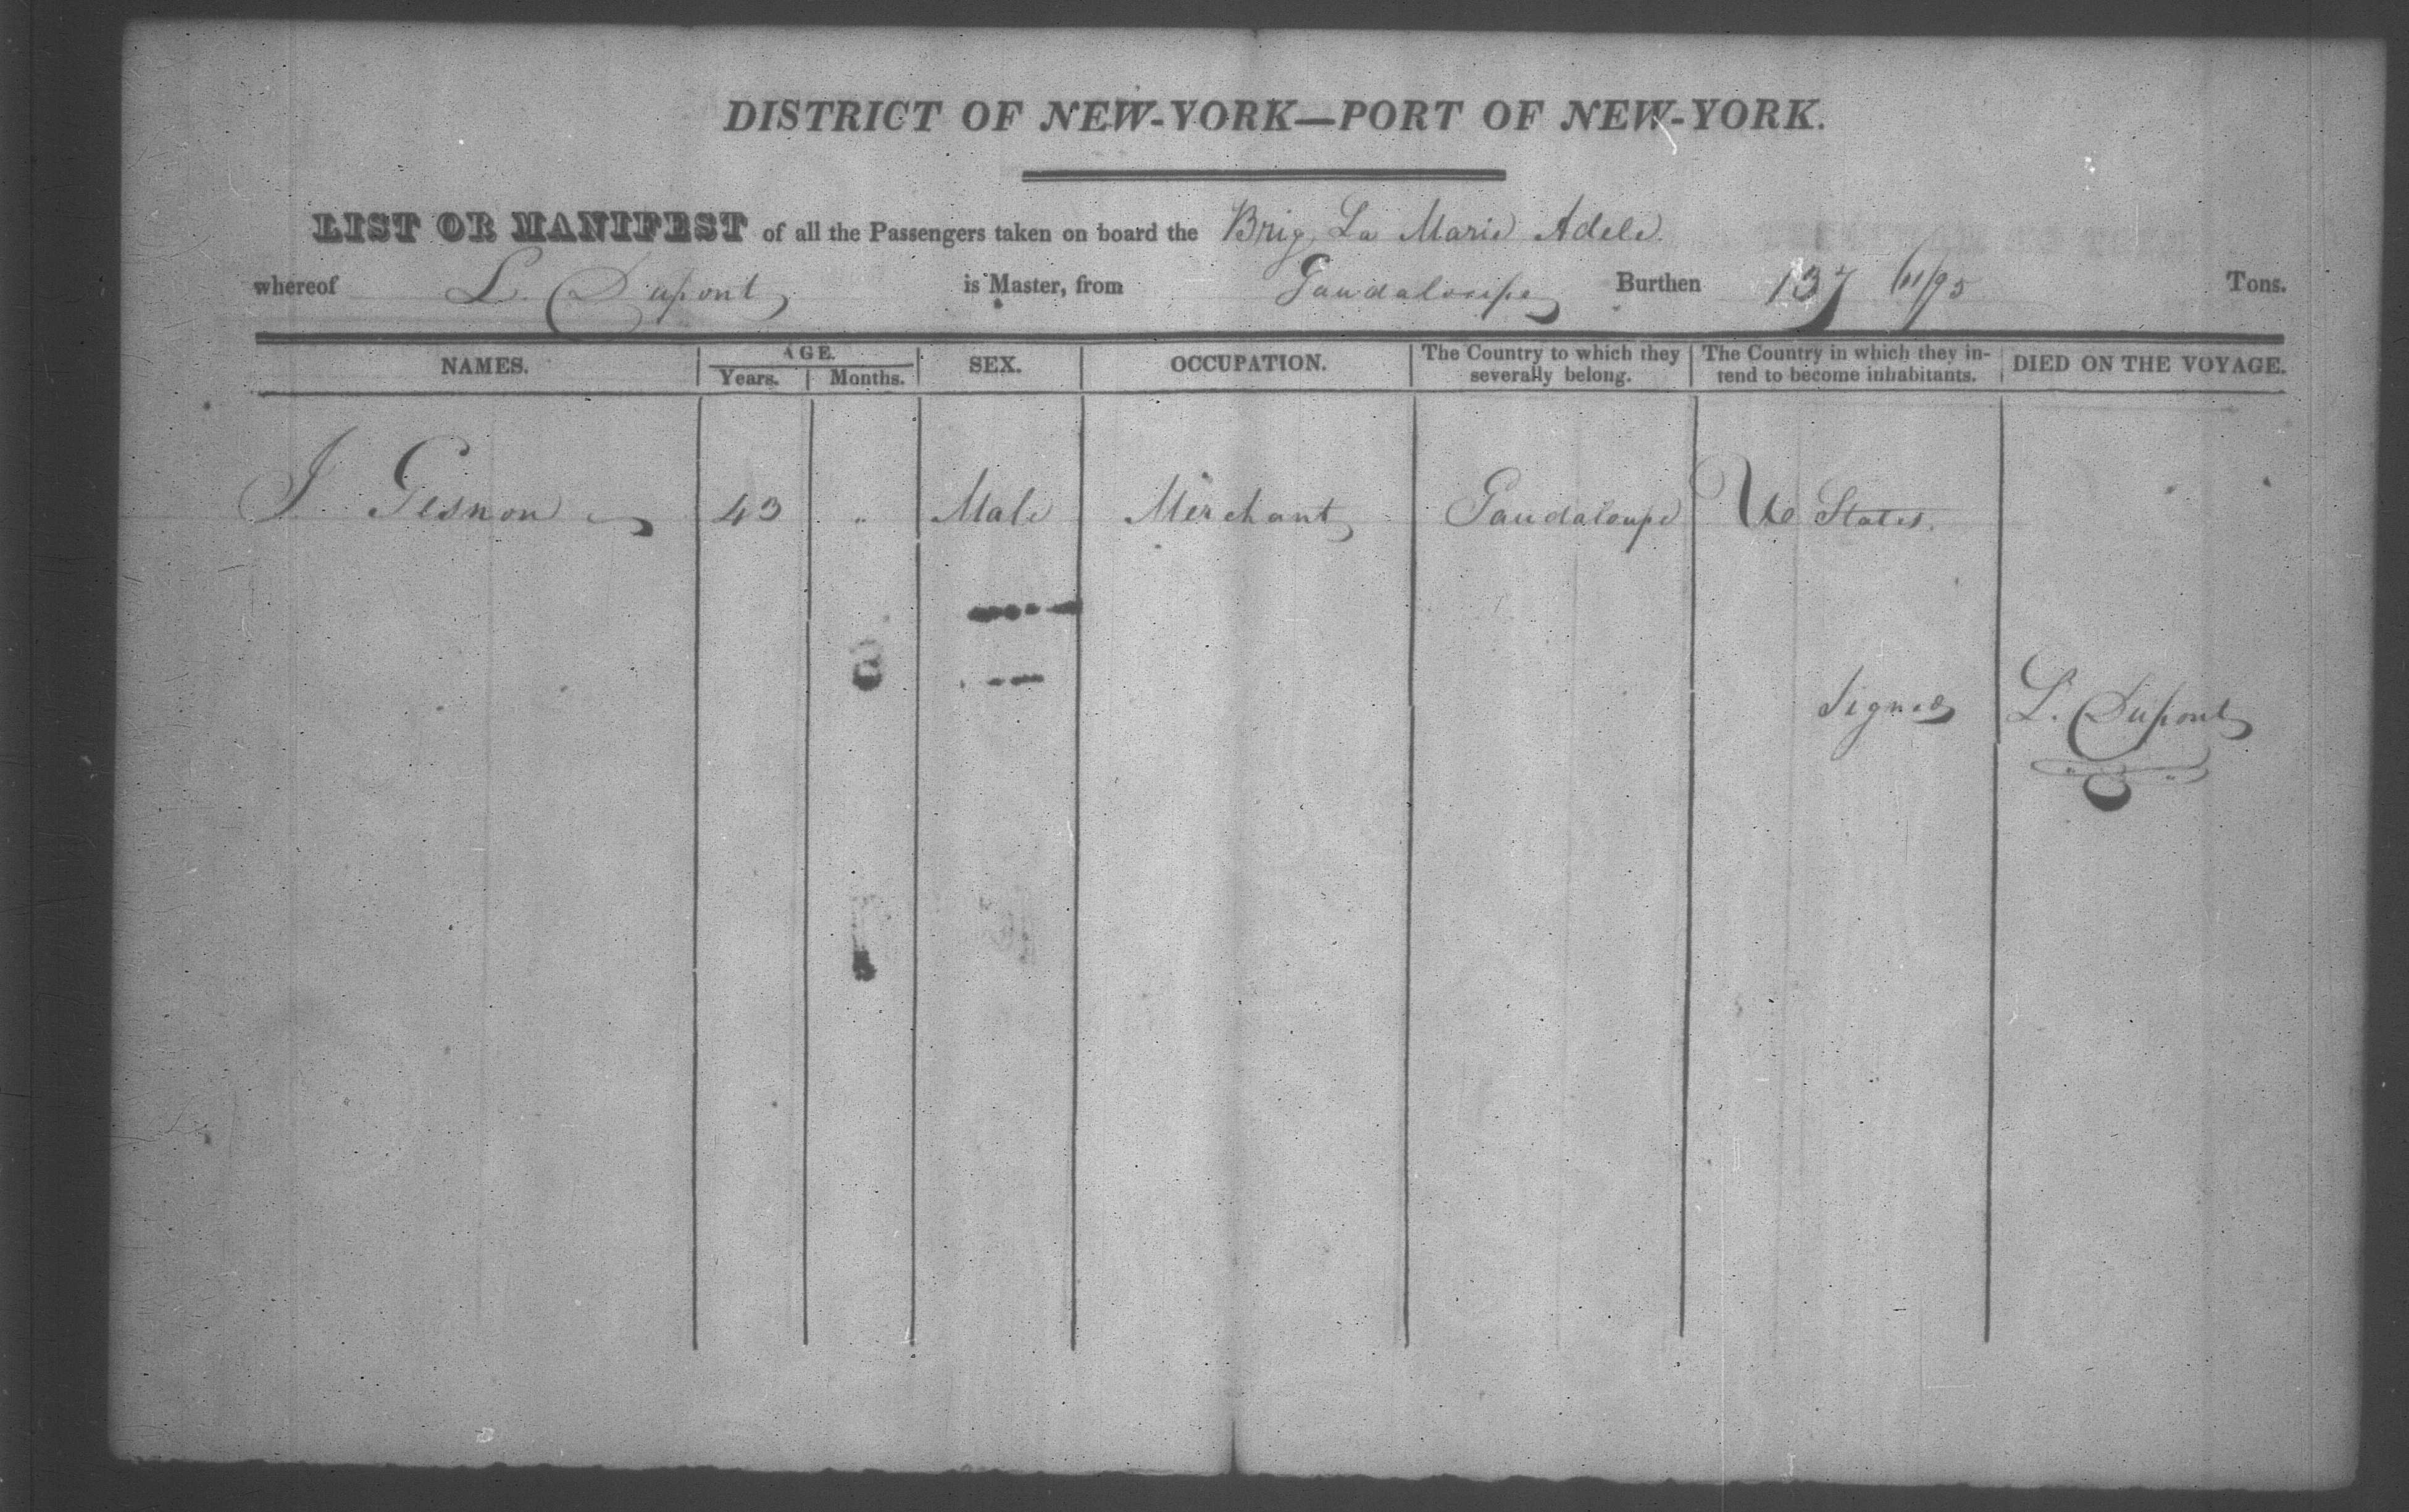 DISTRICT OF NEW-YORK—PORT OF NEW-YORK.
LIST OR MANIFEST of all the Passengers taken on board the Brig La Marie Adele
whereof L. Dupont is Master, from Gaudaloupe Burthen 137 Tons.
NAMES. AGE. Years. Months. SEX. OCCUPATION. The Country to which they severally belong. The Country in which they intend to become inhabitants. DIED ON THE VOYAGE.
J Gesnon 43 " Male Merchant Gaudaloupe States.
Signed L. Dupont